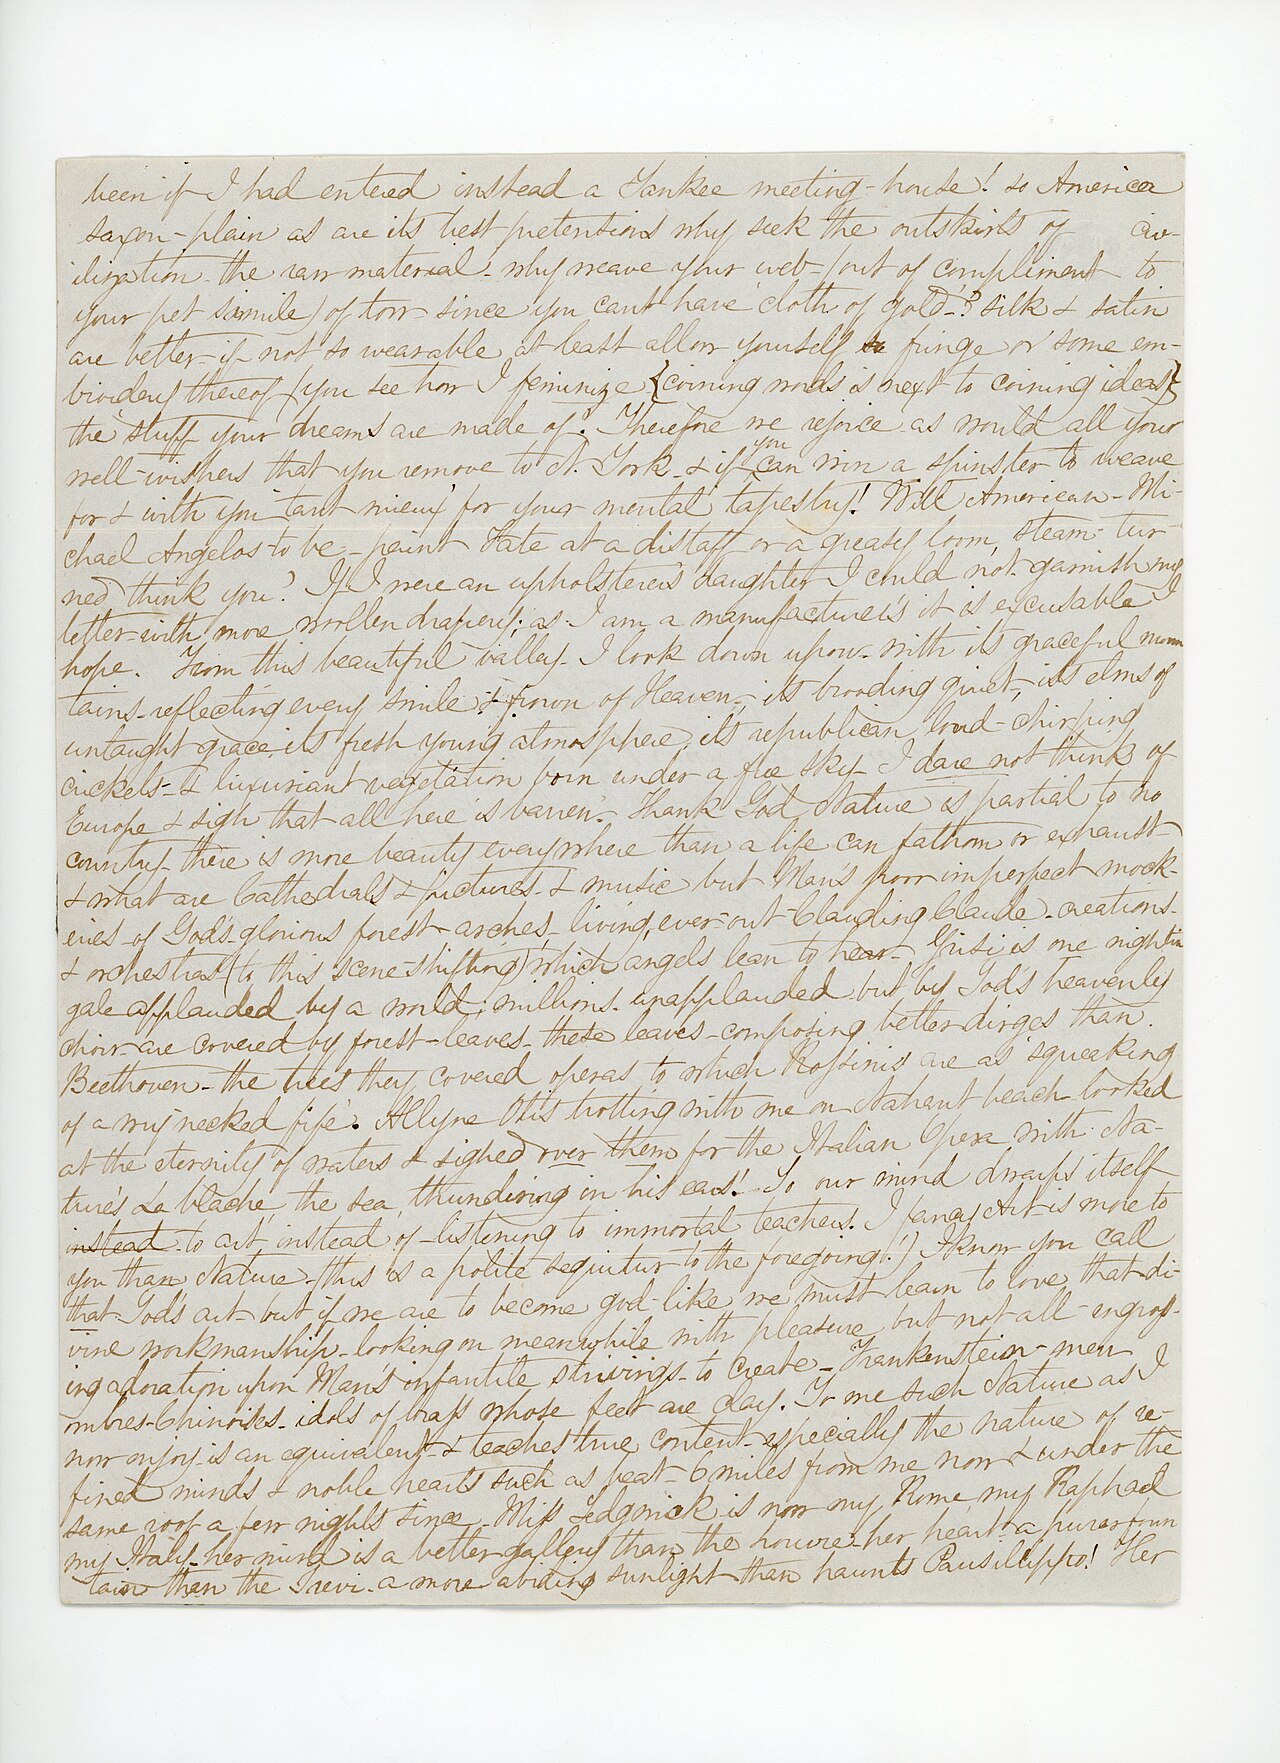 been if I had entered instead a Yankee meeting-house! so America
saxon-plain as are its best pretensions why seek the outskirts of civ-
ilization- the raw material- why weave your web- (out of compliment to
your pet simile) of tow- since you cant have 'cloth of gold'-? silk & satin
are better- if not so wearable at least allow yourself fringe or some em-
broidery thereof (you see how I feminize {coining words is next to coining ideas}
the 'stuff your dreams are made of'. Therefore we rejoice as would all your
well-wishers that you remove to N. York- & if you can win a spinster to weave
for & with you 'tant mieux' for your mental tapestry! Will American- Mi-
chael Angelos-to be- paint Fate at a distaff or a greasy loom, steam- tur-
ned think you? If I were an upholsterer's daughter I could not garnish my
letter- with more woollen drapery; as I am a manufacturer's it is excusable I
hope. From this beautiful valley- I look down upon- with its graceful moun
tains- reflecting every smile & frown of Heaven,- its brooding quiet, its elms of
untaught grace, its fresh young atmosphere, its republican, loud-chirping
crickets- & luxuriant vegetation born under a free sky- I dare not think of
Europe & sigh that 'all here is barren'- Thank God, Nature is partial to no
country- there is more beauty everywhere than a life can fathom or exhaust-
& what are Cathedrals & pictures- & music but Man's poor imperfect mock-
eries- of God's glorious forest-arches- living, ever-out-Clauding Claude-creations-
& orchestras (to this scene-shifting) which angels lean to hear- Grisi is one nightin
gale applauded by a world; millions- unapplauded but by God's heavenly
choir- are covered by forest-leaves- these leaves- composing better dirges than
Beethoven- the trees they covered operas to which Rossinis are as 'squeaking
of a wry necked fife'. Allyne Otis trotting with me on Nahant beach- looked
at the eternity of waters & sighed over them for the Italian Opera with Na-
ture's La blache, the sea, thundering in his ears! So our mind dwarfs itself
instead to art instead of listening to immortal teachers. I fancy Art is more to
you than Nature- (this is a polite sequitur to the foregoing!) I know you call
that God's art- but if we are to become god-like we must learn to love that di-
vine workmanship- looking on meanwhile with pleasure but not all-engross-
ing adoration upon Man's infantile strivings- to create- Frankenstein-men
ombres-Chinoises- idols of brass whose feet are clay. To me such Nature as I
now enjoy is an equivalent- & teaches true content- especially the nature of re-
fined minds & noble hearts such as beat- 6 miles from me now & under the
same roof a few nights since- Miss Sedgwick is now my Rome my Raphael
my Italy- her mind is a better gallery than the louvre- her heart- a purer foun
tain than the Trevi- a more abiding sunlight than haunts Pausilippo! Her